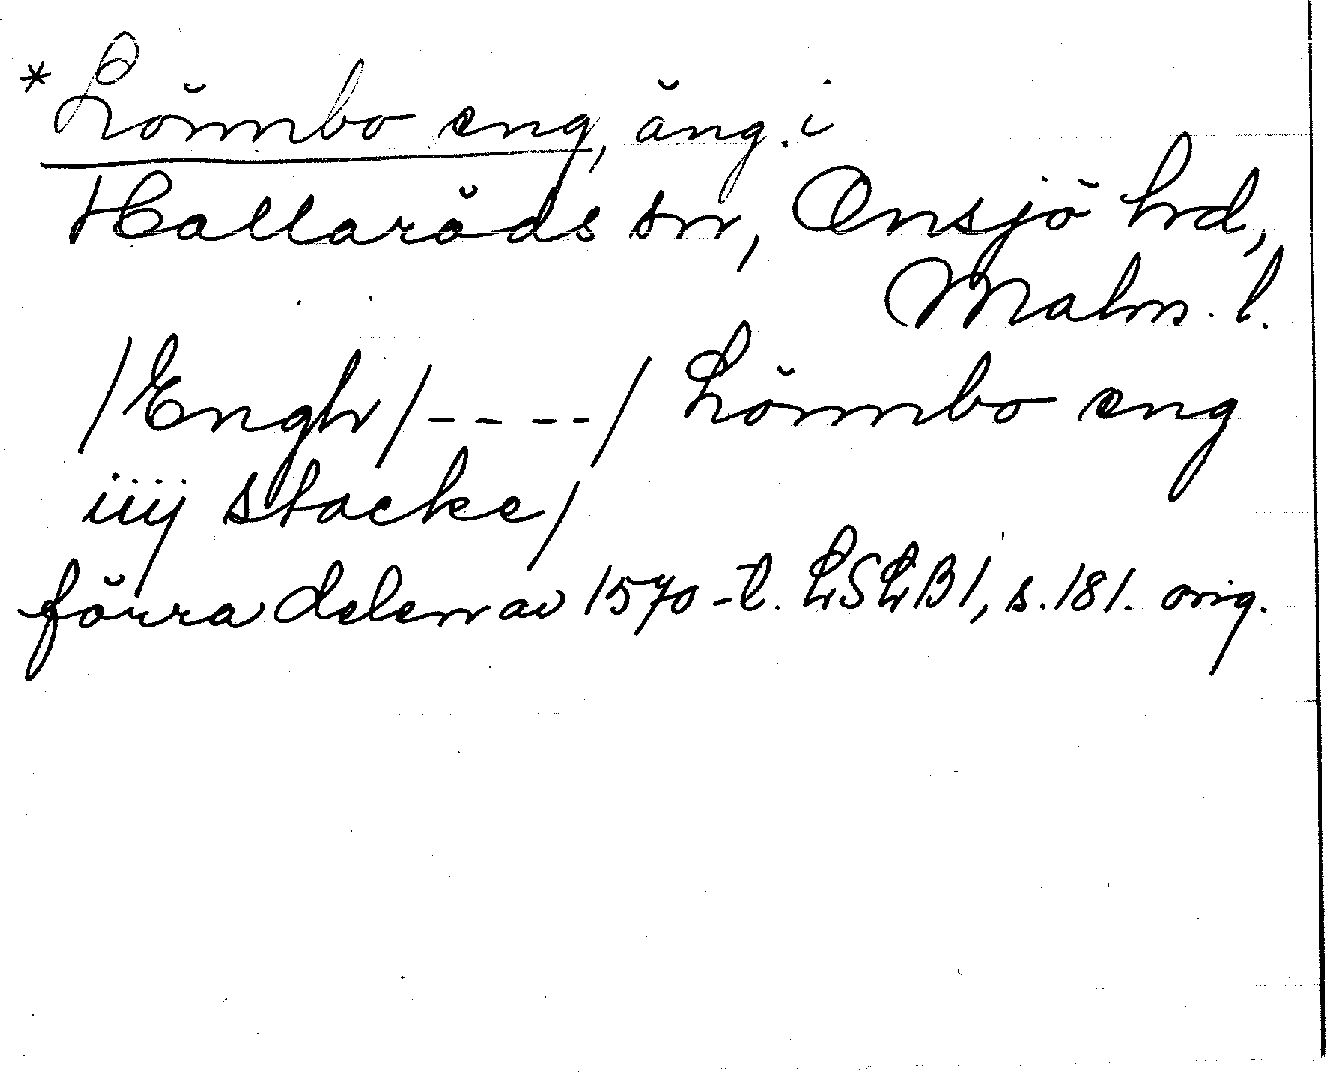 *Lömmbo eng, äng i
Hallaröds sn, Onsjö hd,
Malm. l.
/Engh/----/ Lömmbo eng
iiij stacke/
förra delen av 1570-t. LSLB1, s. 181. orig.